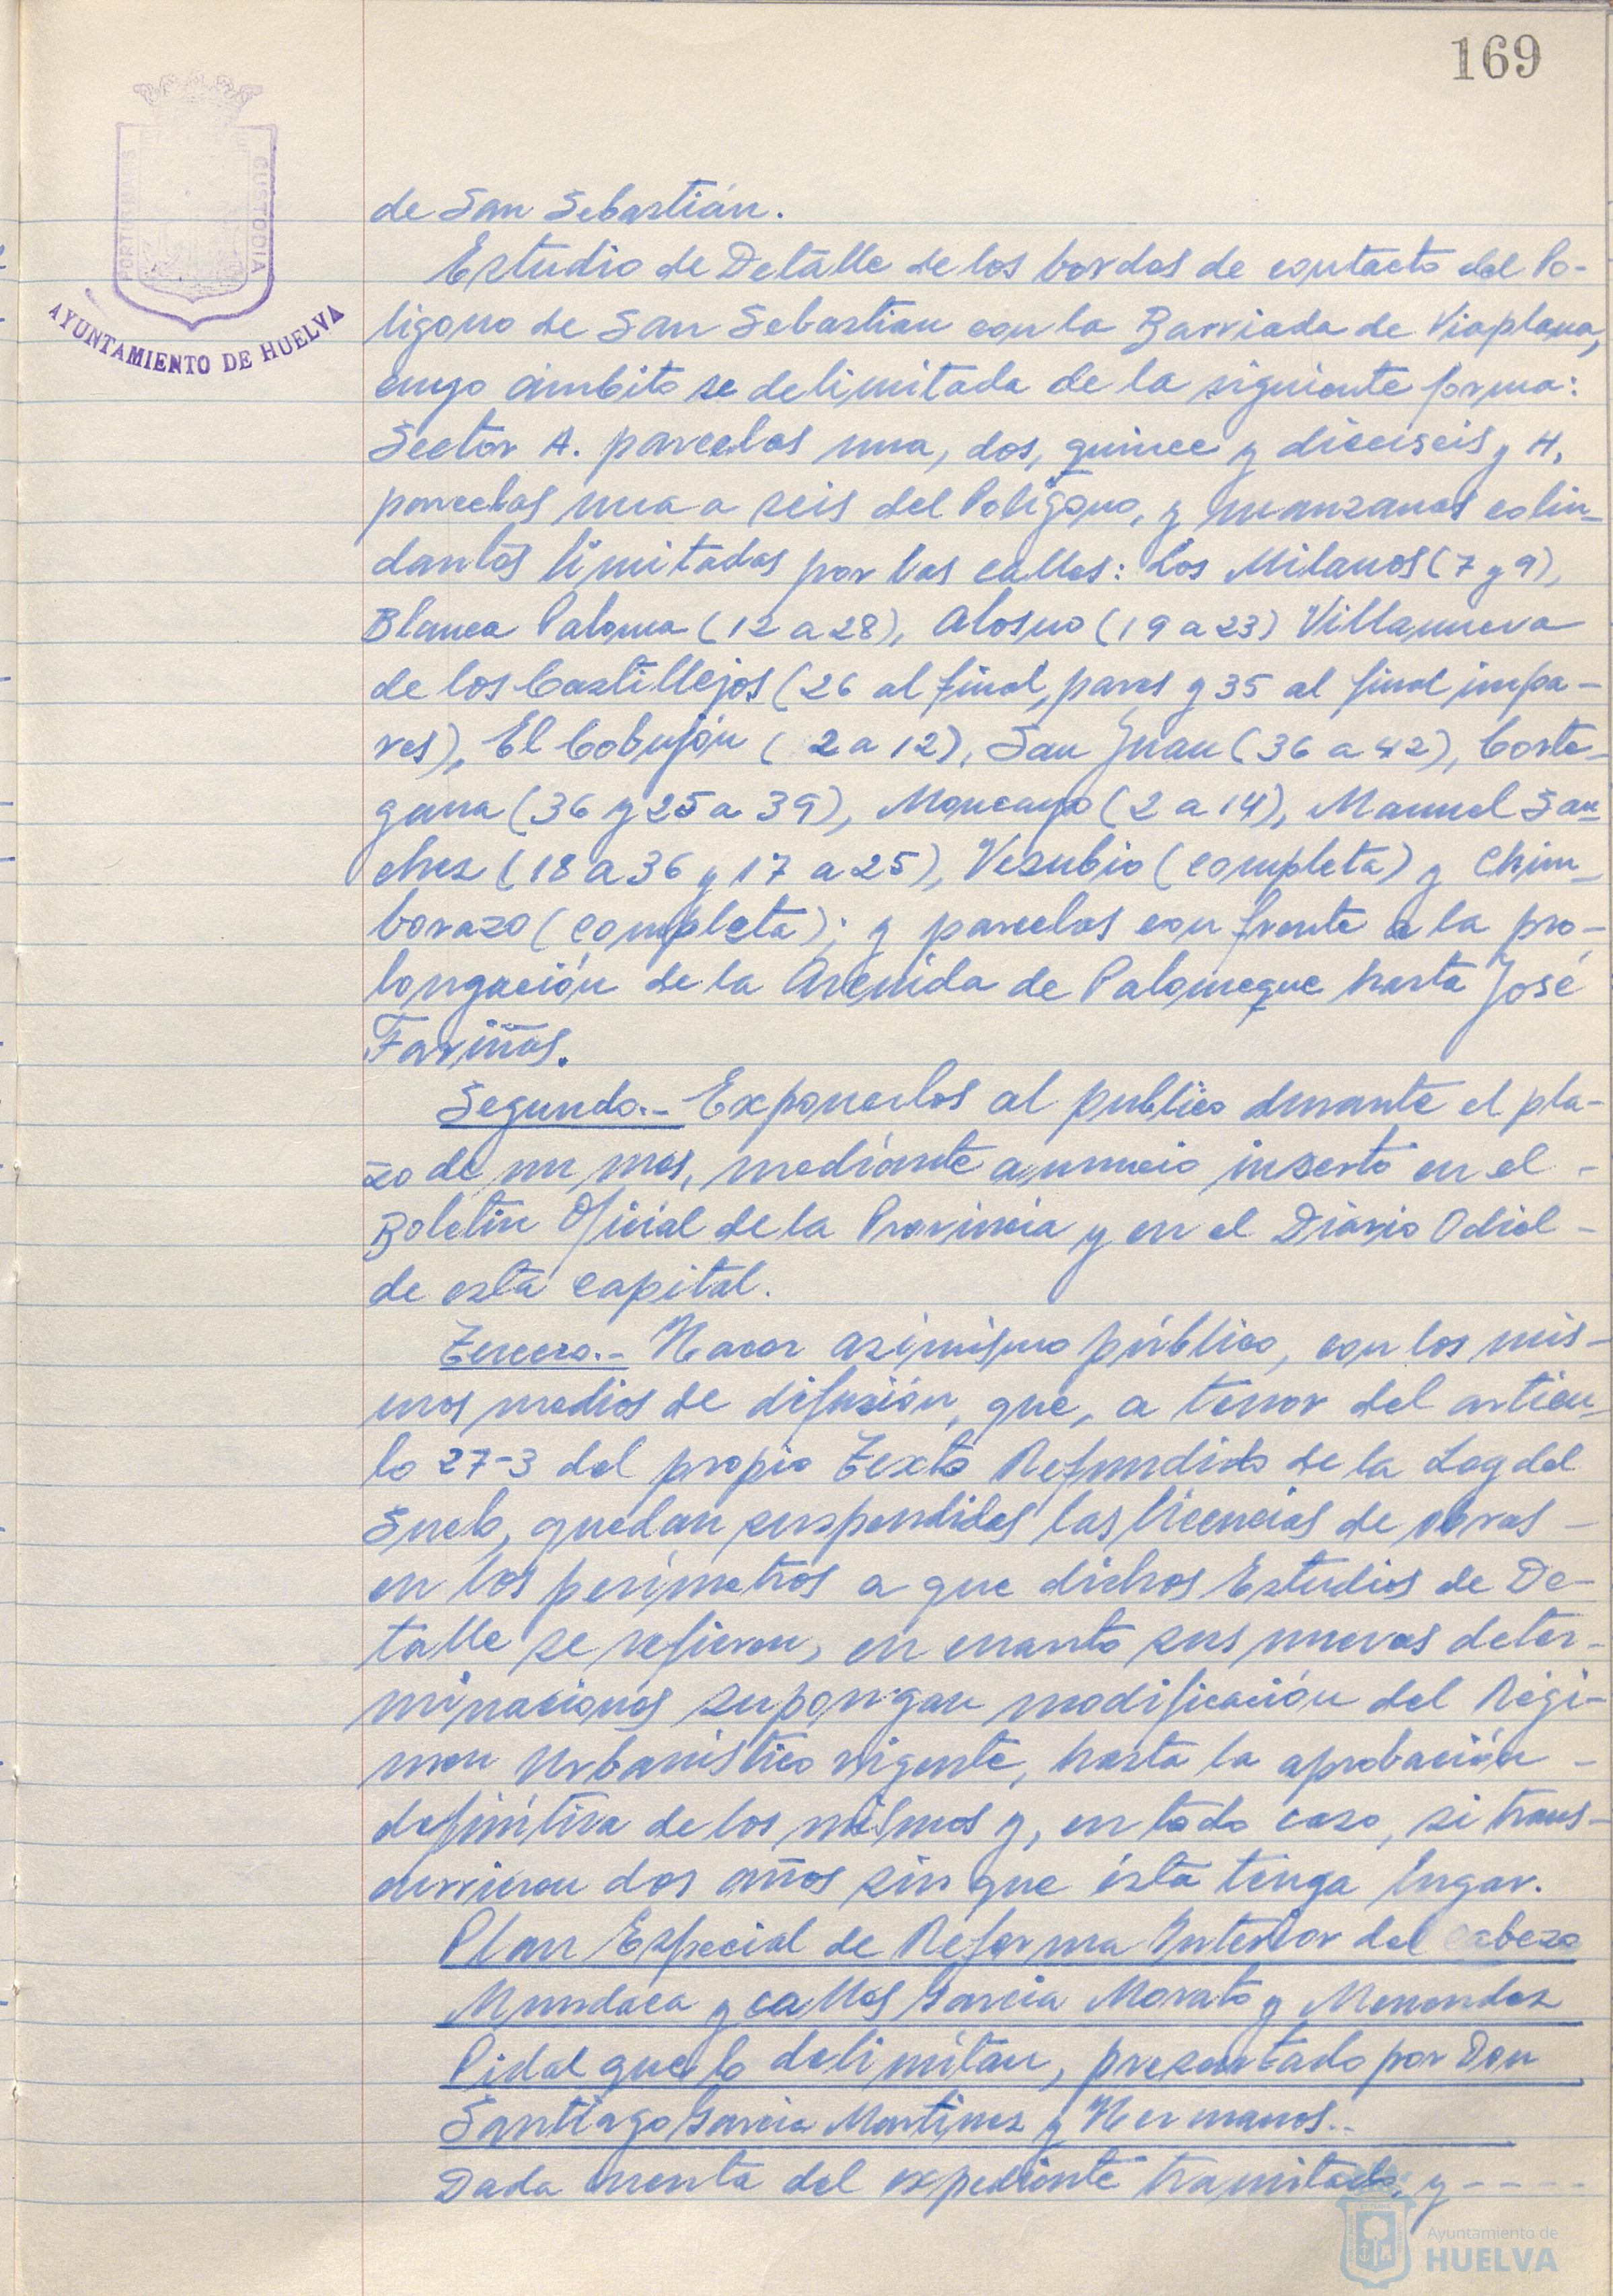 169
PORTUS MARIS
CUSTODIA
AYUNTAMIENTO DE HUELVA
de San Sebastián.
Estudio de Detalle de los bordes de contacto del Po-
ligono de San Sebastian con la Barriada de Viaplana,
cuyo ámbito se delimitada de la siguiente forma:
Sector A. parcelas una, dos, quince y dieciseis y H,
parcelas una a seis del Polígono, y manzanas colin-
dantes limitadas por las calles: Los Milanos (7 y 9),
Blanca Paloma (12 a 28), Alosno (19 a 23) Villanueva
de los Castillejos (26 al final, pares y 35 al final impa-
res), El Cobujón (2 a 12), San Juan (36 a 42), Corte-
gana (36 y 25 a 39), Moncayo (2 a 14), Manuel San-
chez (18 a 36 y 17 a 25), Vesubio (completa) y Chim-
borazo (completa); y parcelas con frente a la pro-
longación de la Avenida de Palomeque hasta José
Fariñas.
Segundo.- Exponerlos al publico durante el pla-
zo de un mes, mediante anuncio inserto en el -
Boletin Oficial de la Provincia y en el Diario Odiel -
de esta capital.
Tercero.- Hacer asimismo público, con los mis-
mos medios de difusión, que, a tenor del articu-
lo 27-3 del propio Texto Refundido de la Ley del
Suelo, quedan suspendidas las licencias de obras -
en los perímetros a que dichos Estudios de De-
talle se refieren, en cuanto sus nuevas deter-
minaciones supongan modificación del Regi-
men Urbanistico vigente, hasta la aprobación -
definitiva de los mismos y, en todo caso, si trans-
currieran dos años sin que ésta tenga lugar.
Plan Especial de Reforma Interior del cabezo
Mundaca y calles Garcia Morato y Menendez
Pidal que lo delimitan, presentado por Don
Santiago Garcia Martinez y Hermanos.-
Dada cuenta del expediente tramitado, y - - - -
Ayuntamiento de
HUELVA